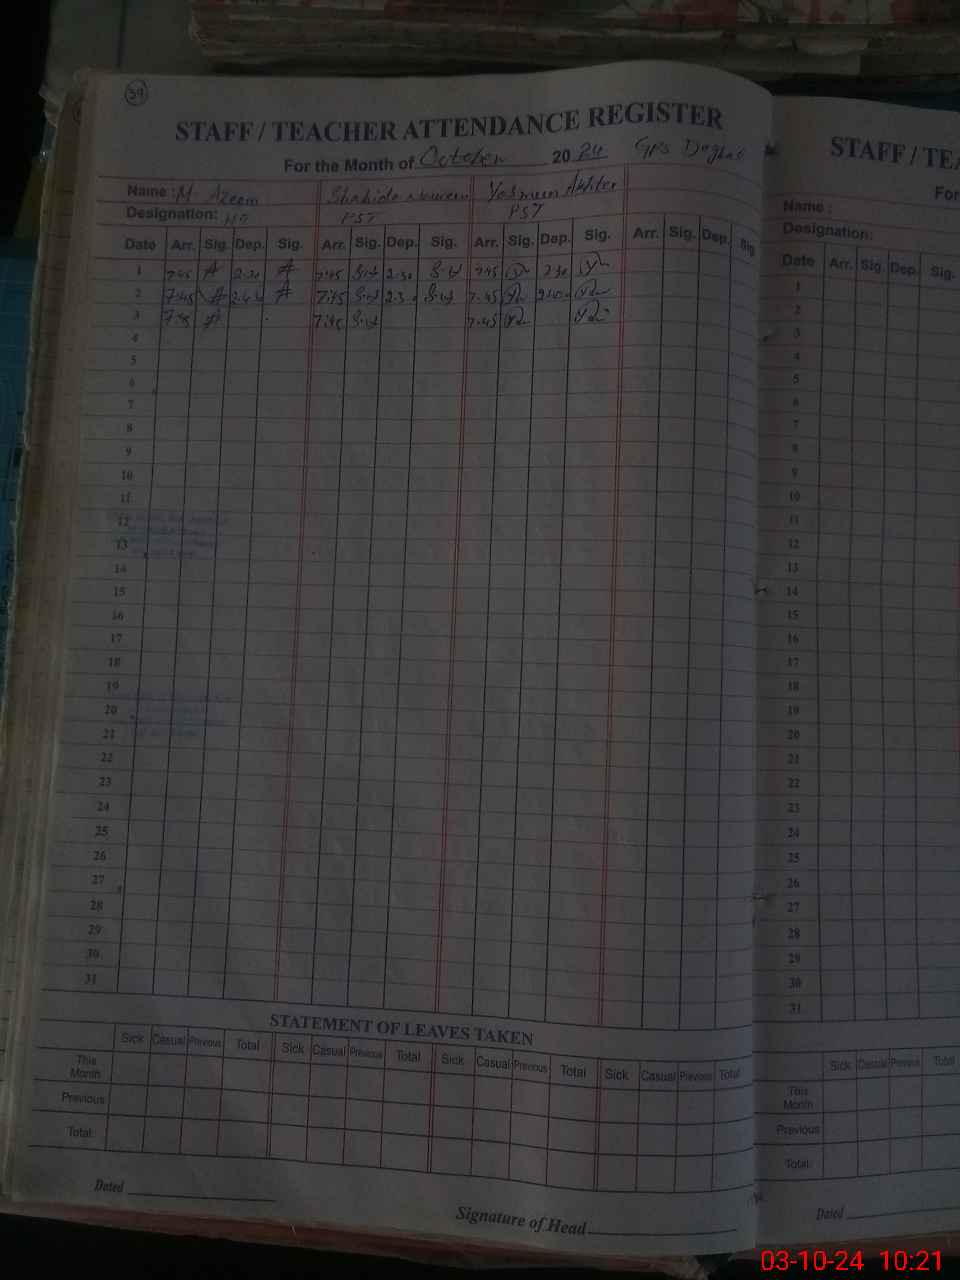 39
STAFF / TEACHER ATTENDANCE REGISTER
For the Month of October 2024 GPS
Name : M. Azeem Shahida Noureen Yasmeen Akhter
Designation: PST PST
Date Arr. Sig. Dep. Sig. Arr. Sig. Dep. Sig. Arr. Sig. Dep. Sig. Arr. Sig. Dep. Sig
1 7.45 2.30 7.45 2.30 7.45 2.30
2 7.45 7.45 2.3 7.45
3 7.45 7.45 7.45
4
5
6
7
8
9
10
11
12
13
14
15
16
17
18
19
20
21
22
23
24
25
26
27
28
29
30
31
STATEMENT OF LEAVES TAKEN
Sick Casual Previous Total Sick Casual Previous Total Sick Casual Previous Total Sick Casual Previous Total
This Month
Previous
Total
Dated
Signature of Head
STAFF / TEA
For
Name :
Designation:
Date Arr. Sig. Dep. Sig.
1
2
3
4
5
6
7
8
9
10
11
12
13
14
15
16
17
18
19
20
21
22
23
24
25
26
27
28
29
30
31
Sick Casual Previous Total
This Month
Previous
Total
Dated
03-10-24 10:21